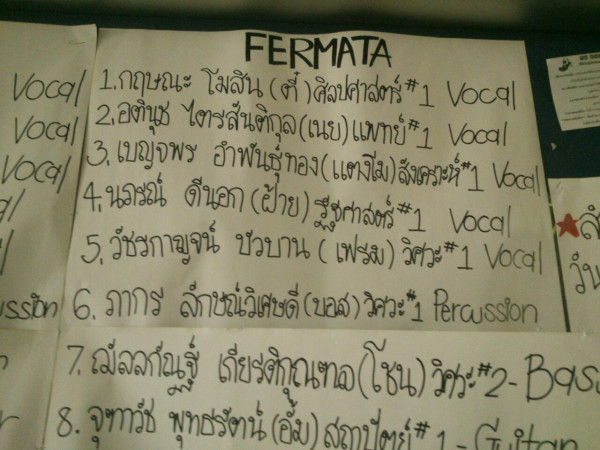 FERMATA
1. กฤษณะ โมสิน (ตี๋) ศิลปศาสตร์ #1 Vocal
2. อตินุช ไตรสันติกุล (เนย) แพทย์ #1 Vocal
3. เบญจพร อำพันธุ์ทอง (แตงโม) สังเคราะห์ #1 Vocal
4. นภรณ์ ดีนอก (ฝ้าย) รัฐศาสตร์ #1 Vocal
5. วัชรกาญจน์ บัวบาน (เฟรม) วิศวะ #1 Vocal
6. ภากร ลักษณ์วิเศษดี (บอส) วิศวะ #1 Percussion
7. เกียรติกุณฑล (โชน) วิศวะ #2 - Bass
8. จุฑาวัช พุทธรัตน์ (อั้ม) สถาปัตย์ #1 - Guitar
Vocal
Vocal
Vocal